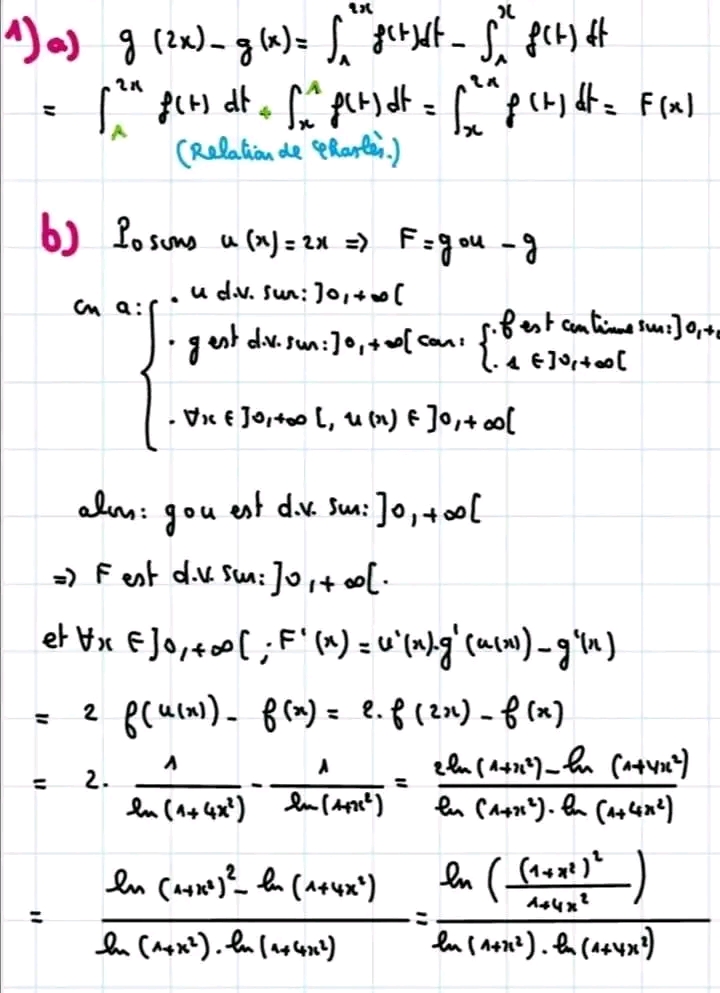 1) a) g (2x) - g(x) = ∫₁²ˣ f(t)dt - ∫₁ˣ f(t) dt
= ∫₁²ˣ f(t) dt + ∫ₓ¹ f(t) dt = ∫ₓ²ˣ f(t) dt = F(x)
(Relation de Charles.)
b) Posons u(x) = 2x => F = gou - g
on a: { . u d.v. sur: ]0,+∞[
. g est d.v. sur: ]0,+∞[ car: { . f est continue sur: ]0,+
. 1 ∈ ]0,+∞[
. ∀x ∈ ]0,+∞[, u(x) ∈ ]0,+∞[
alors: gou est d.v. sur: ]0,+∞[
=> F est d.v. sur: ]0,+∞[.
et ∀x ∈ ]0,+∞[ ; F'(x) = u'(x).g'(u(x)) - g'(x)
= 2 f(u(x)) - f(x) = 2. f(2x) - f(x)
= 2. 1/ln(1+4x²) - 1/ln(1+x²) = (2ln(1+x²) - ln (1+4x²))/(ln (1+x²). ln (1+4x²))
= (ln (1+x²)² - ln (1+4x²))/(ln (1+x²). ln (1+4x²)) = ln ((1+x²)²/(1+4x²))/(ln (1+x²). ln (1+4x²))